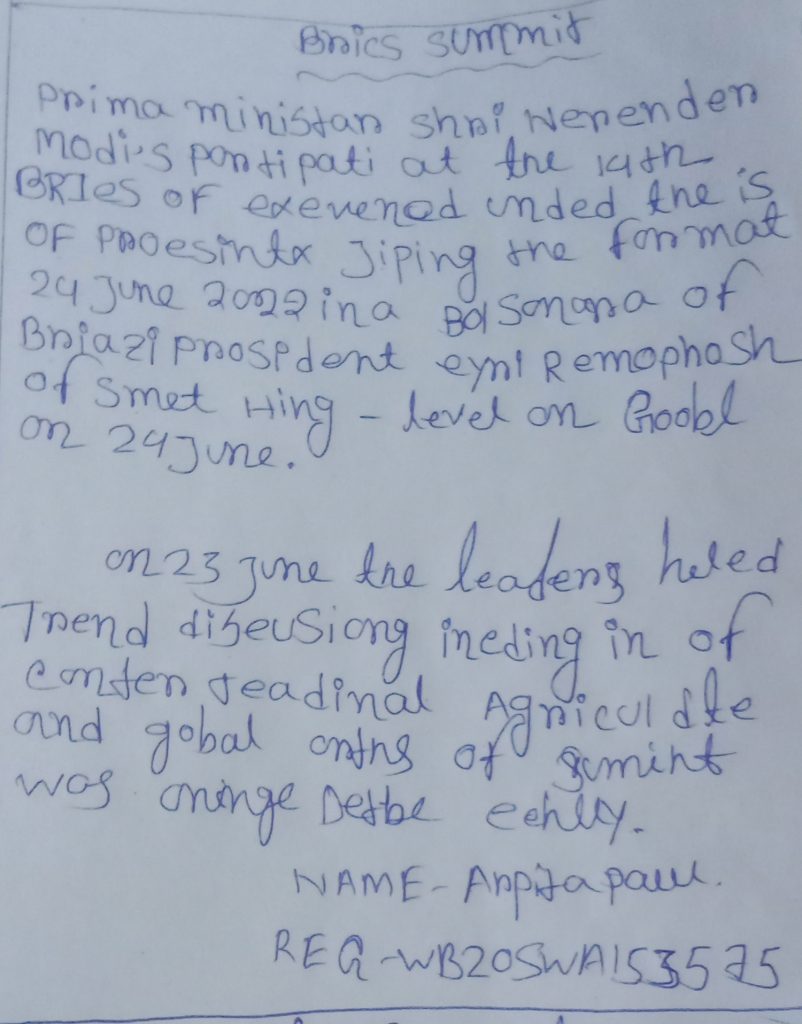 Brics summit
prima ministar shri Nerender
Modi's partipati at the 14th
BRIES OF exevened inded the is
OF proesinta Jiping the format
24 June 2022 in a Bolsonara of
Briazi prospdent eyni Remaphosh
of smet Hing - level on Goobl
on 24 June.
on 23 June the leaders heled
Trend diseusiong ineding in of
conter teadinal Agricul dte
and gobal ontrs of sumint
was oninge Detbe eehlly.
NAME - Arpita paul.
REG - WB20SWA153575